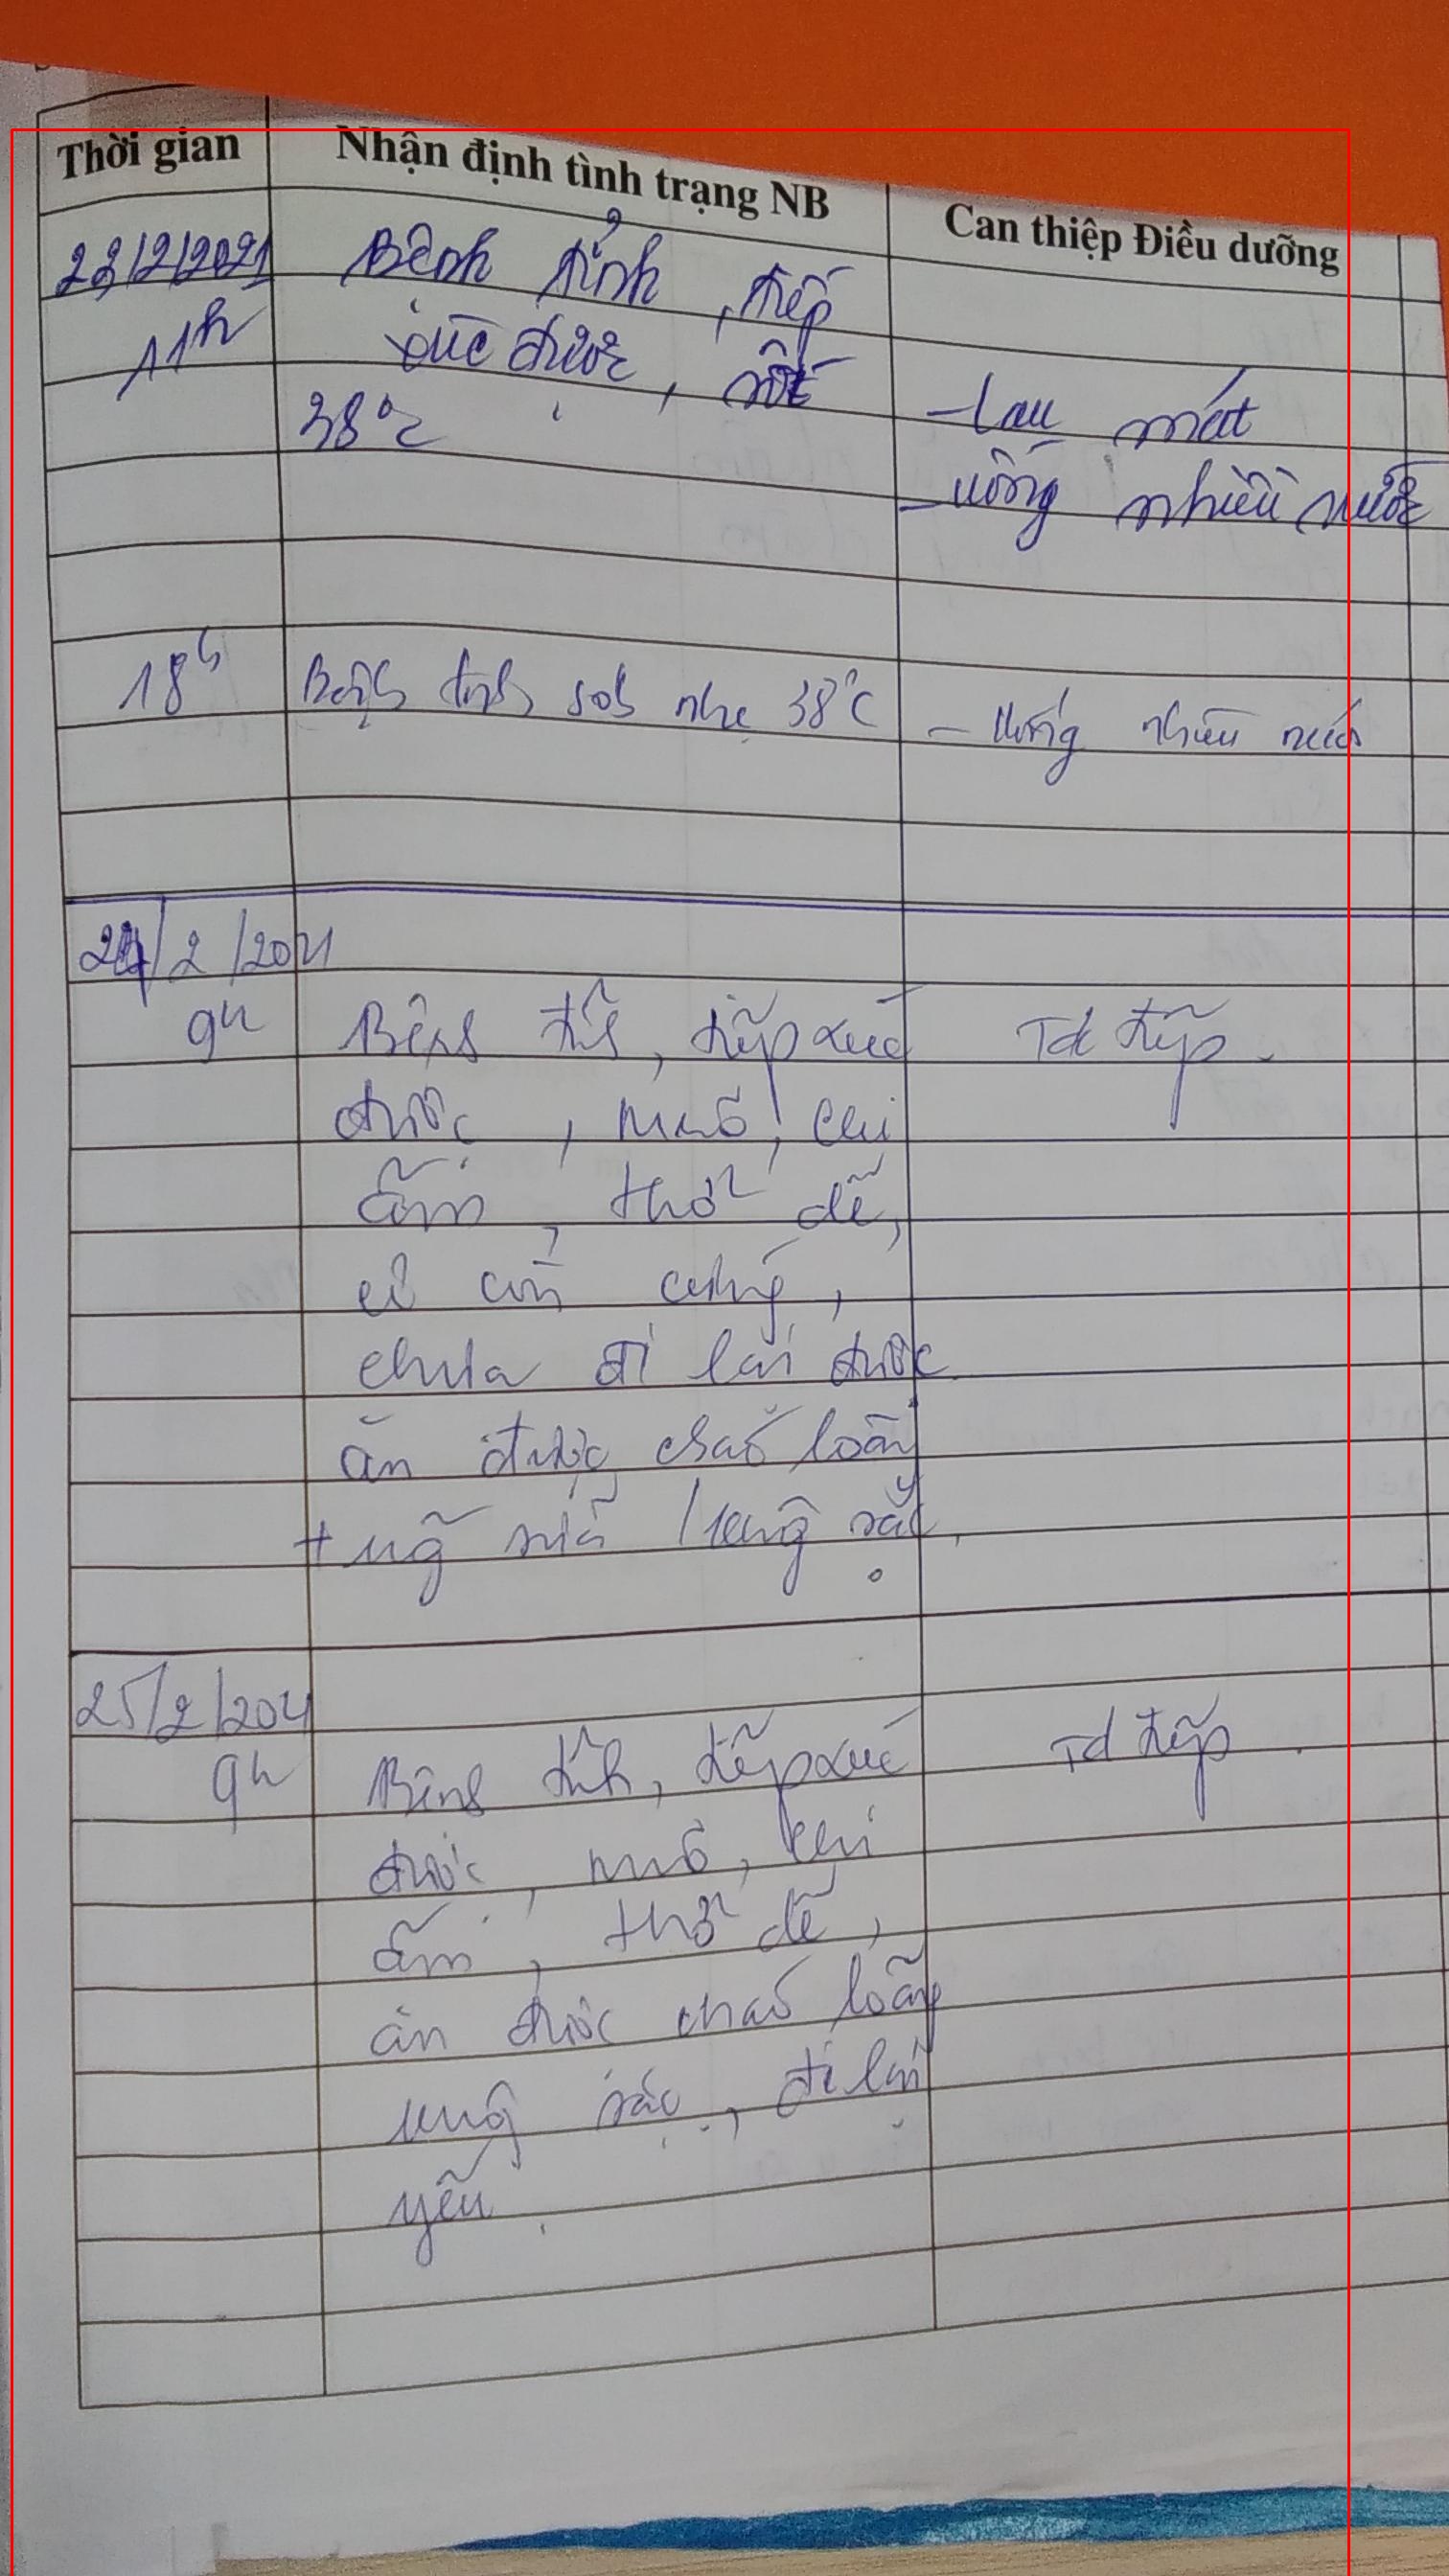 Thời gian Nhận định tình trạng NB Can thiệp Điều dưỡng
23/2/2021 Bệnh tỉnh, tiếp
11h xúc được, sốt
38°C - Lau mát
- uống nhiều nước
18h Bệnh tỉnh sốt nhẹ 38°C - Uống nhiều nước
24/2/2021
9h Bệnh tỉnh, tiếp xúc Td tiếp.
được, mạch, chi
ấm, thở dễ,
cổ còn cứng,
chưa đi lại được
ăn được cháo loãng
+ uống sữa
25/2/2021
9h Bệnh tỉnh, tiếp xúc Td tiếp.
được, chi
ấm, thở dễ,
ăn được cháo loãng
đi lại
yếu.